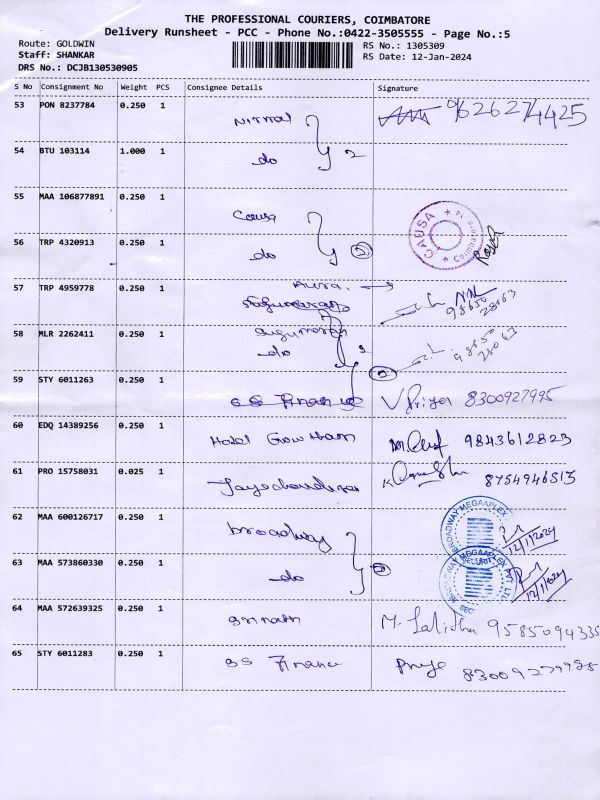 THE PROFESSIONAL COURIERS, COIMBATORE
Delivery Runsheet - PCC - Phone No.:0422-3505555 - Page No.:5
Route: GOLDWIN
Staff: SHANKAR
DRS No.: DCJB130530905
RS No.: 1305309
RS Date: 12-Jan-2024
S No Consignment No Weight PCS Consignee Details Signature
53 PON 8237784 0.250 1 Nirmal 9626274425
54 BTU 103114 1.000 1 do 2
55 MAA 106877891 0.250 1 Causa CAUSA
56 TRP 4320913 0.250 1 do 2
57 TRP 4959778 0.250 1
58 MLR 2262411 0.250 1 do 2
59 STY 6011263 0.250 1 SS Finance V Priya 8300927995
60 EDQ 14389256 0.250 1 Hotel Gowtham 9843612823
61 PRO 15758031 0.025 1 8754946513
62 MAA 600126717 0.250 1 broadway BROADWAY MEGAAPLEX 12/1/2024
63 MAA 573860330 0.250 1 do 2 BROADWAY MEGAAPLEX PVT LTD SECURITY 12/1/2024
64 MAA 572639325 0.250 1 Srinath M. Lalitha 9585094335
65 STY 6011283 0.250 1 SS Finance Priya